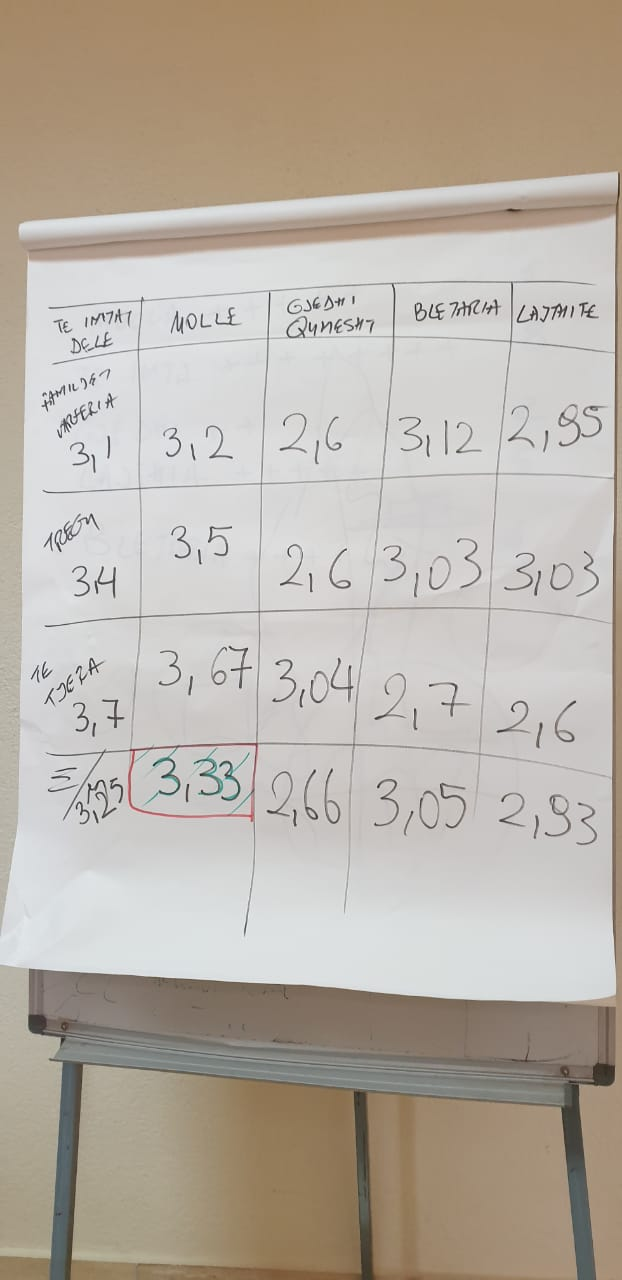 TE IMTAT DELE MOLLE GJEDHI QUMESHT BLETARIA LAJTHITE
FAMILJET VARFERIA 3,1 3,2 2,6 3,12 2,95
TREGU 3,4 3,5 2,6 3,03 3,03
TE TJERA 3,7 3,67 3,04 2,7 2,6
3,25 3,33 2,66 3,05 2,93